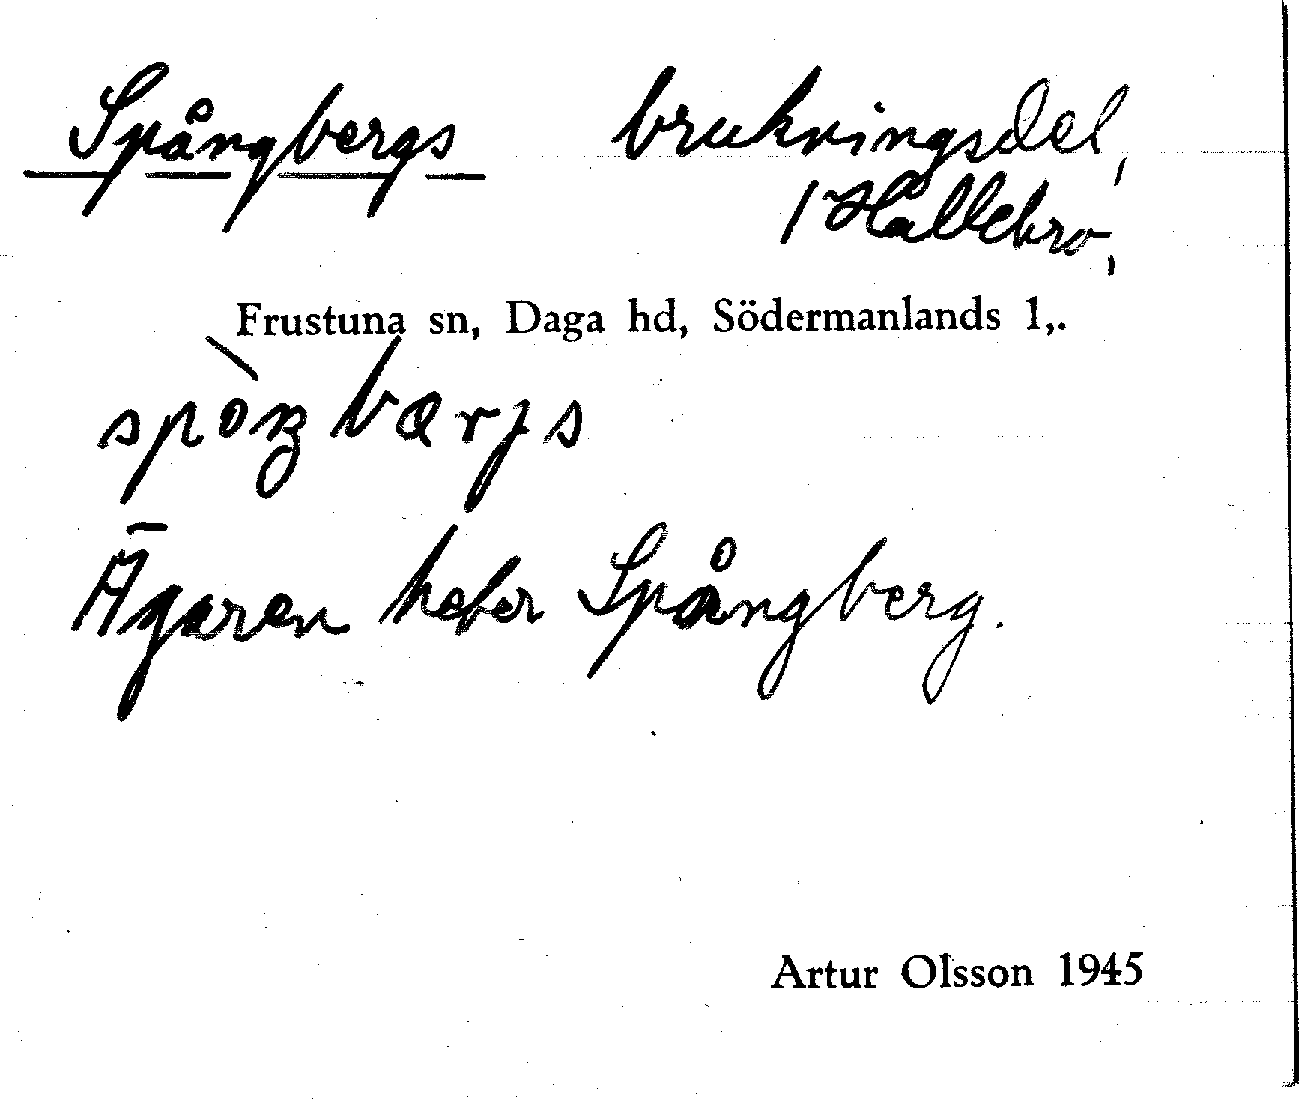 Spångbergs brukningsdel,
1 Hållebro,
Frustuna sn, Daga hd, Södermanlands l,.
spòŋbærjs
Ägaren heter Spångberg.
Artur Olsson 1945